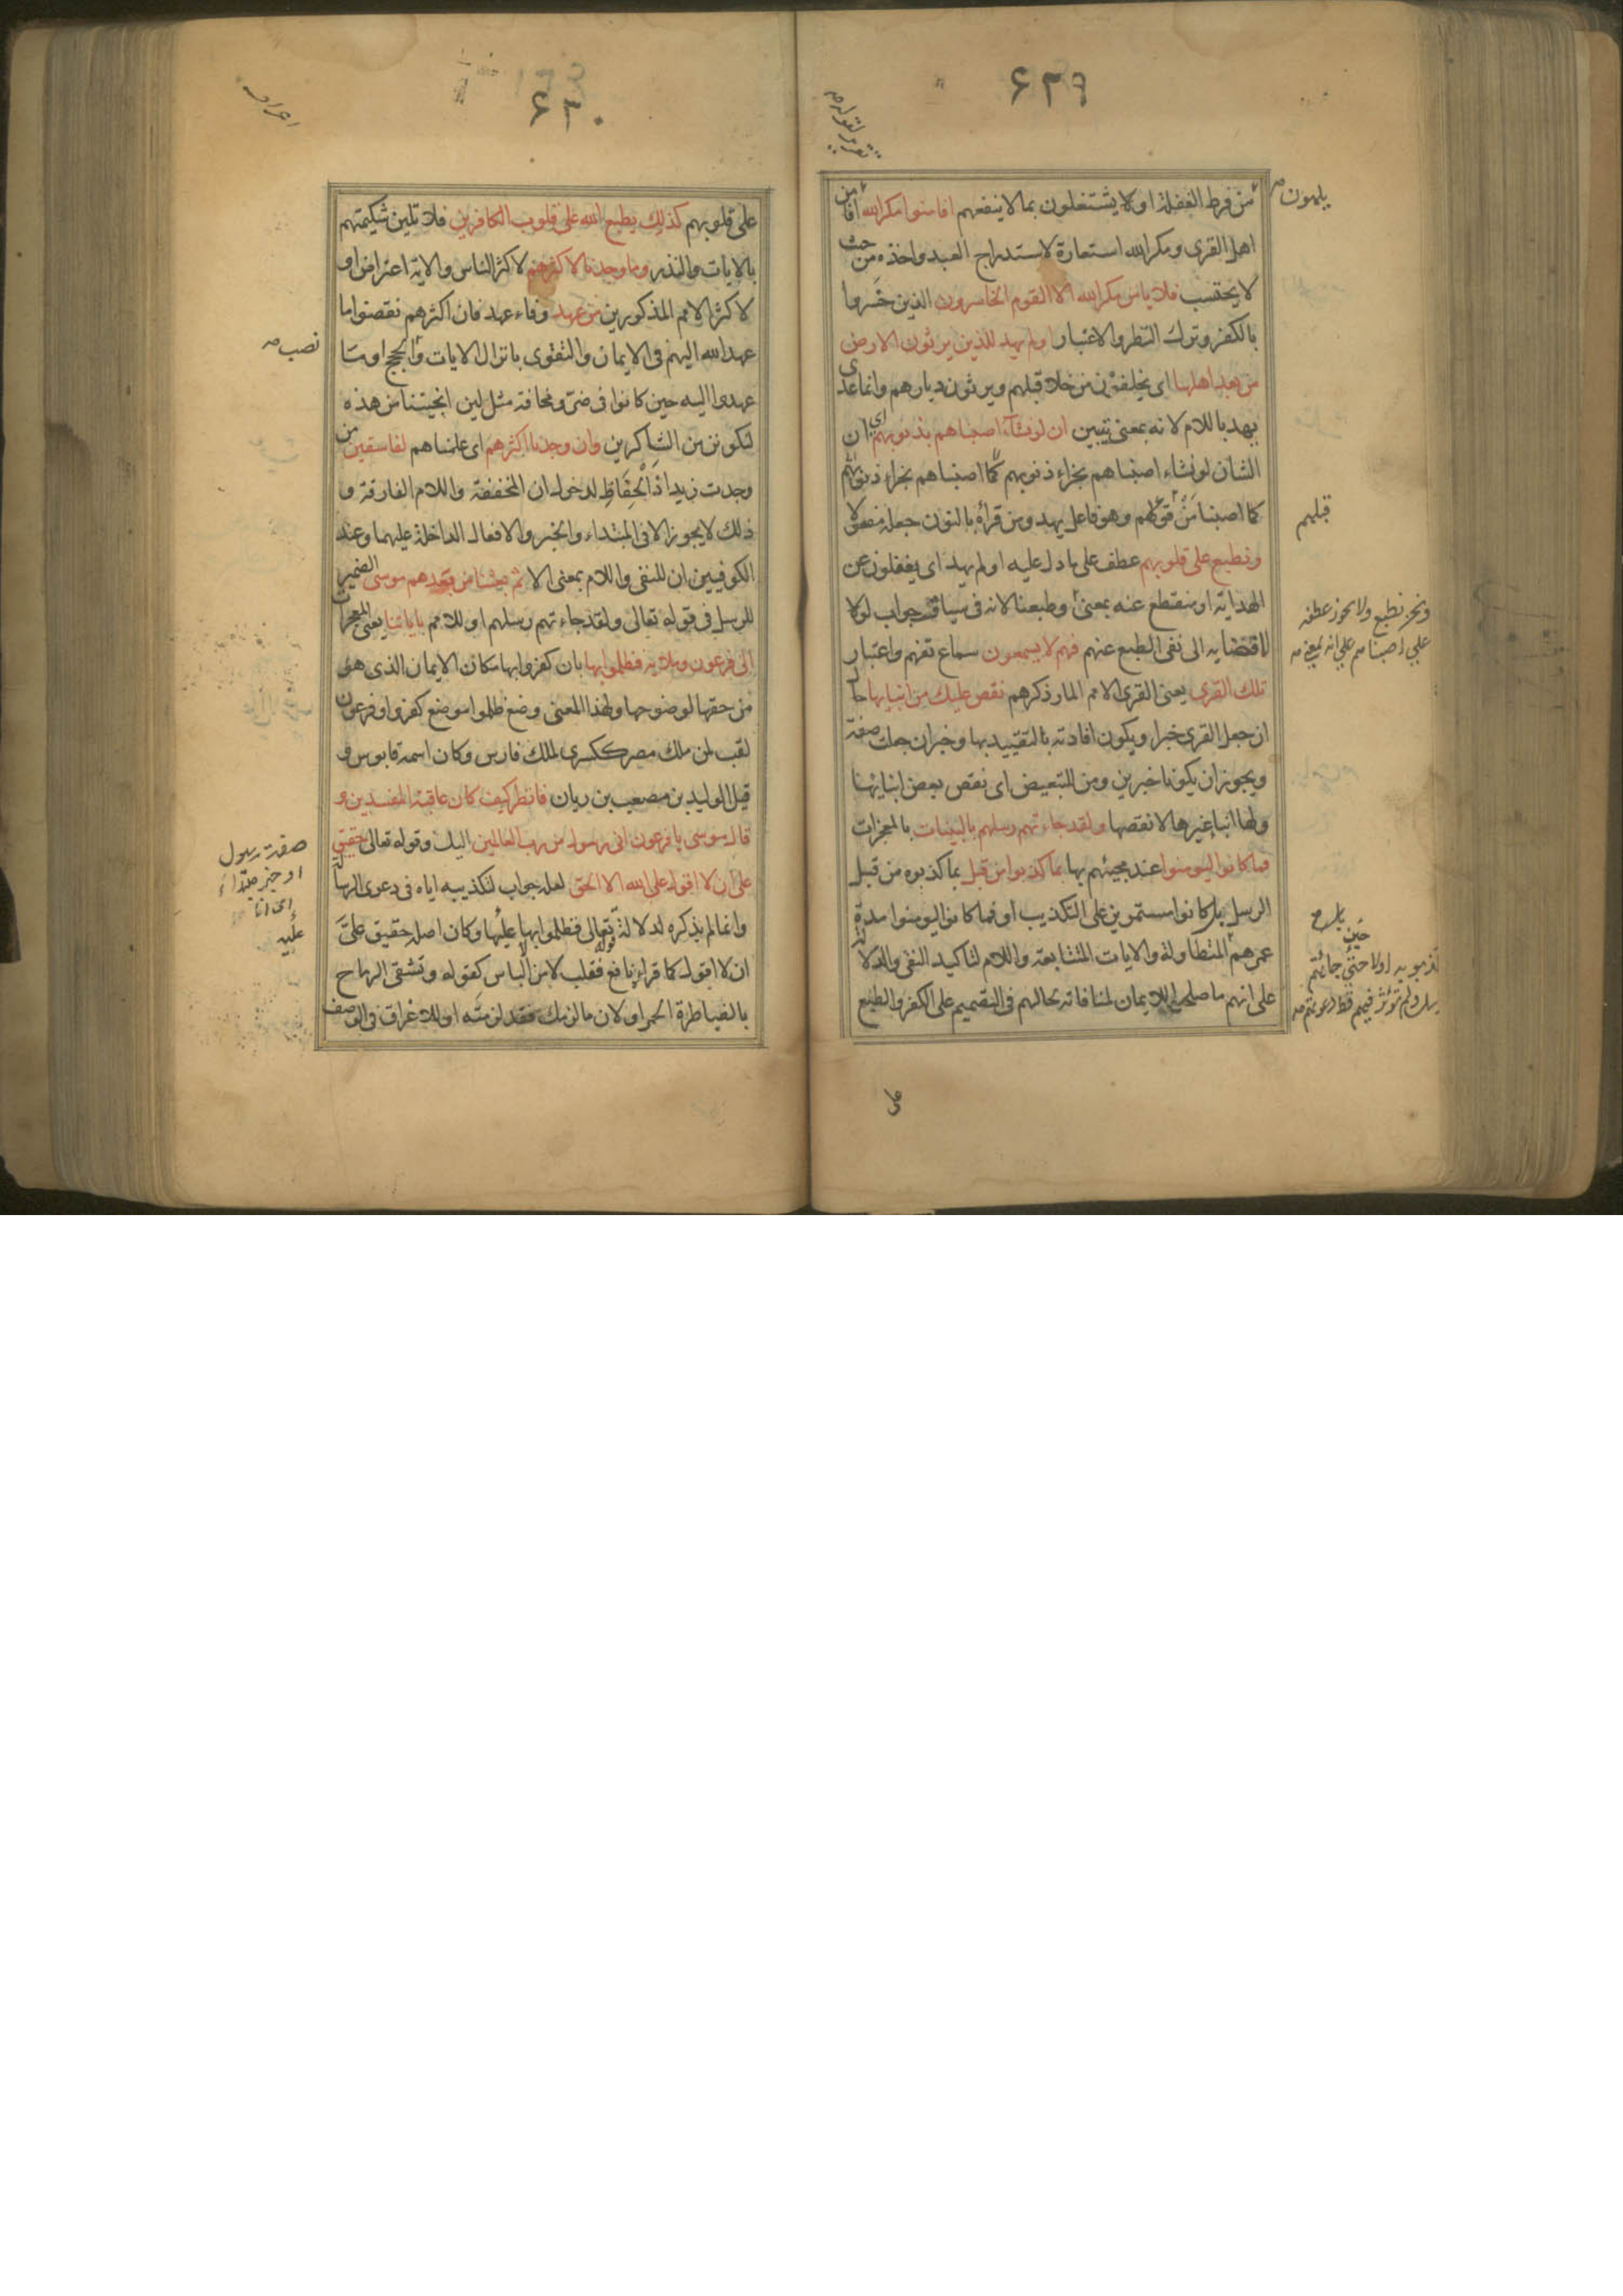 ۶۲۹
تقرير لقوله
يلهون
من فرط الغفلة او لا يشتغلون بما لا ينفعهم افامنوا مكر الله افامن
اهل القرى ومكر الله استعارة لاستدراج العبد واخذه من حيث
لا يحتسب فلا يامن مكر الله الا القوم الخاسرون الذين خسروا
بالكفر وترك النظر والاعتبار اولم يهد للذين يرثون الارض
من بعد اهلها اى يخلفون من خلا قبلهم ويرثون ديارهم وانما عدى
يهد باللام لانه بمعنى يتبين ان لو نشاء اصبناهم بذنوبهم اى ان
الشان لو نشاء اصبناهم بجزاء ذنوبهم كما اصبناهم بجزاء ذنوبهم
كما اصبنا من قولهم وهو فاعل يهد ومن قراه بالنون جعله مفعولا
قبلهم
ونطبع على قلوبهم عطف على ما دل عليه اولم يهد اى يغفلون عن
الهداية او منقطع عنه بمعنى وطبعنا لانه فى سياقه جواب لولا
ونحن نطبع ولا يجوز عطفه
على اصبناهم على انه بمعنى
لاقتضايه الى نفى الطبع عنهم فهم لا يسمعون سماع تفهم واعتبار
تلك القرى يعنى القرى الامم المار ذكرهم نقص عليك من انبايها حال
ان جعل القرى خبرا ويكون افادته بالتقييد بها وخبران جعلت صفة
ويجوز ان يكونا خبرين ومن للتبعيض اى نقص بعض انبائها
ولها انباء غيرها لا نقصها ولقد جاءتهم رسلهم بالبينات بالمعجزات
فما كانوا ليومنوا عند مجيئهم بها بما كذبوا من قبل بما كذبوه من قبل
الرسل بل كانوا مستمرين على التكذيب او فما كانوا ليومنوا مدة
عمرهم المتطاولة والايات المتتابعة واللام لتاكيد النفى والدلالة
على انهم ما صلحوا للايمان لمنافاته بحالهم فى التصميم على الكفر والطبع
حين
كذبوا به اولا حتى جائتهم
ولم تؤثر فيهم قط دعوتهم
على
۶۳۰
اعراف
على قلوبهم كذلك يطبع الله على قلوب الكافرين فلا تلين شكيمتهم
بالايات والنذر وما وجدنا لاكثرهم لاكثر الناس والاية اعتراض او
لاكثر الامم المذكورين من عهد وفاء عهد فان اكثرهم نقضوا ما
عهد الله اليهم فى الايمان والتقوى بانزال الايات والحجج او ما
نصب
عهدوا اليه حين كانوا فى ضر ومخافة مثل لين انجيتنا من هذه
لنكونن من الشاكرين وان وجدنا اكثرهم اى علمناهم لفاسقين من
وجدت زيدا ذا الحفاظ لدخول ان المخففة واللام الفارقة و
ذلك لا يجوز الا فى المبتداء والخبر والافعال الداخلة عليهما وعند
الكوفيين ان للنفى واللام بمعنى الا ثم بعثنا من بعدهم موسى الضمير
للرسل فى قوله تعالى ولقد جاءتهم رسلهم او للامم باياتنا يعنى المعجزات
الى فرعون وملايه فظلموا بها بان كفروا بها مكان الايمان الذى هو
من حقها لوضوحها ولهذا المعنى وضع ظلموا موضع كفروا وفرعون
لقب لمن ملك مصر ككسرى لملك فارس وكان اسمه قابوس و
قيل الوليد بن مصعب بن ريان فانظر كيف كان عاقبة المفسدين و
قال موسى يا فرعون انى رسول من رب العالمين اليك وقوله تعالى حقيق
صفة رسول
او خبر مبتداء
اى انا
عليه
على ان لا اقول على الله الا الحق لعله جواب لتكذيبه اياه فى دعوى الرسالة
وانما لم يذكره لدلالة قوله تعالى فظلموا بها عليها وكان اصله حقيق على
ان لا اقول كما قراء نافع فقلب لامن الالباس كقوله وتشقى الرماح
بالضياطرة الحمر او لان ما لزمك فقد لزمته او للاغراق فى الوصف